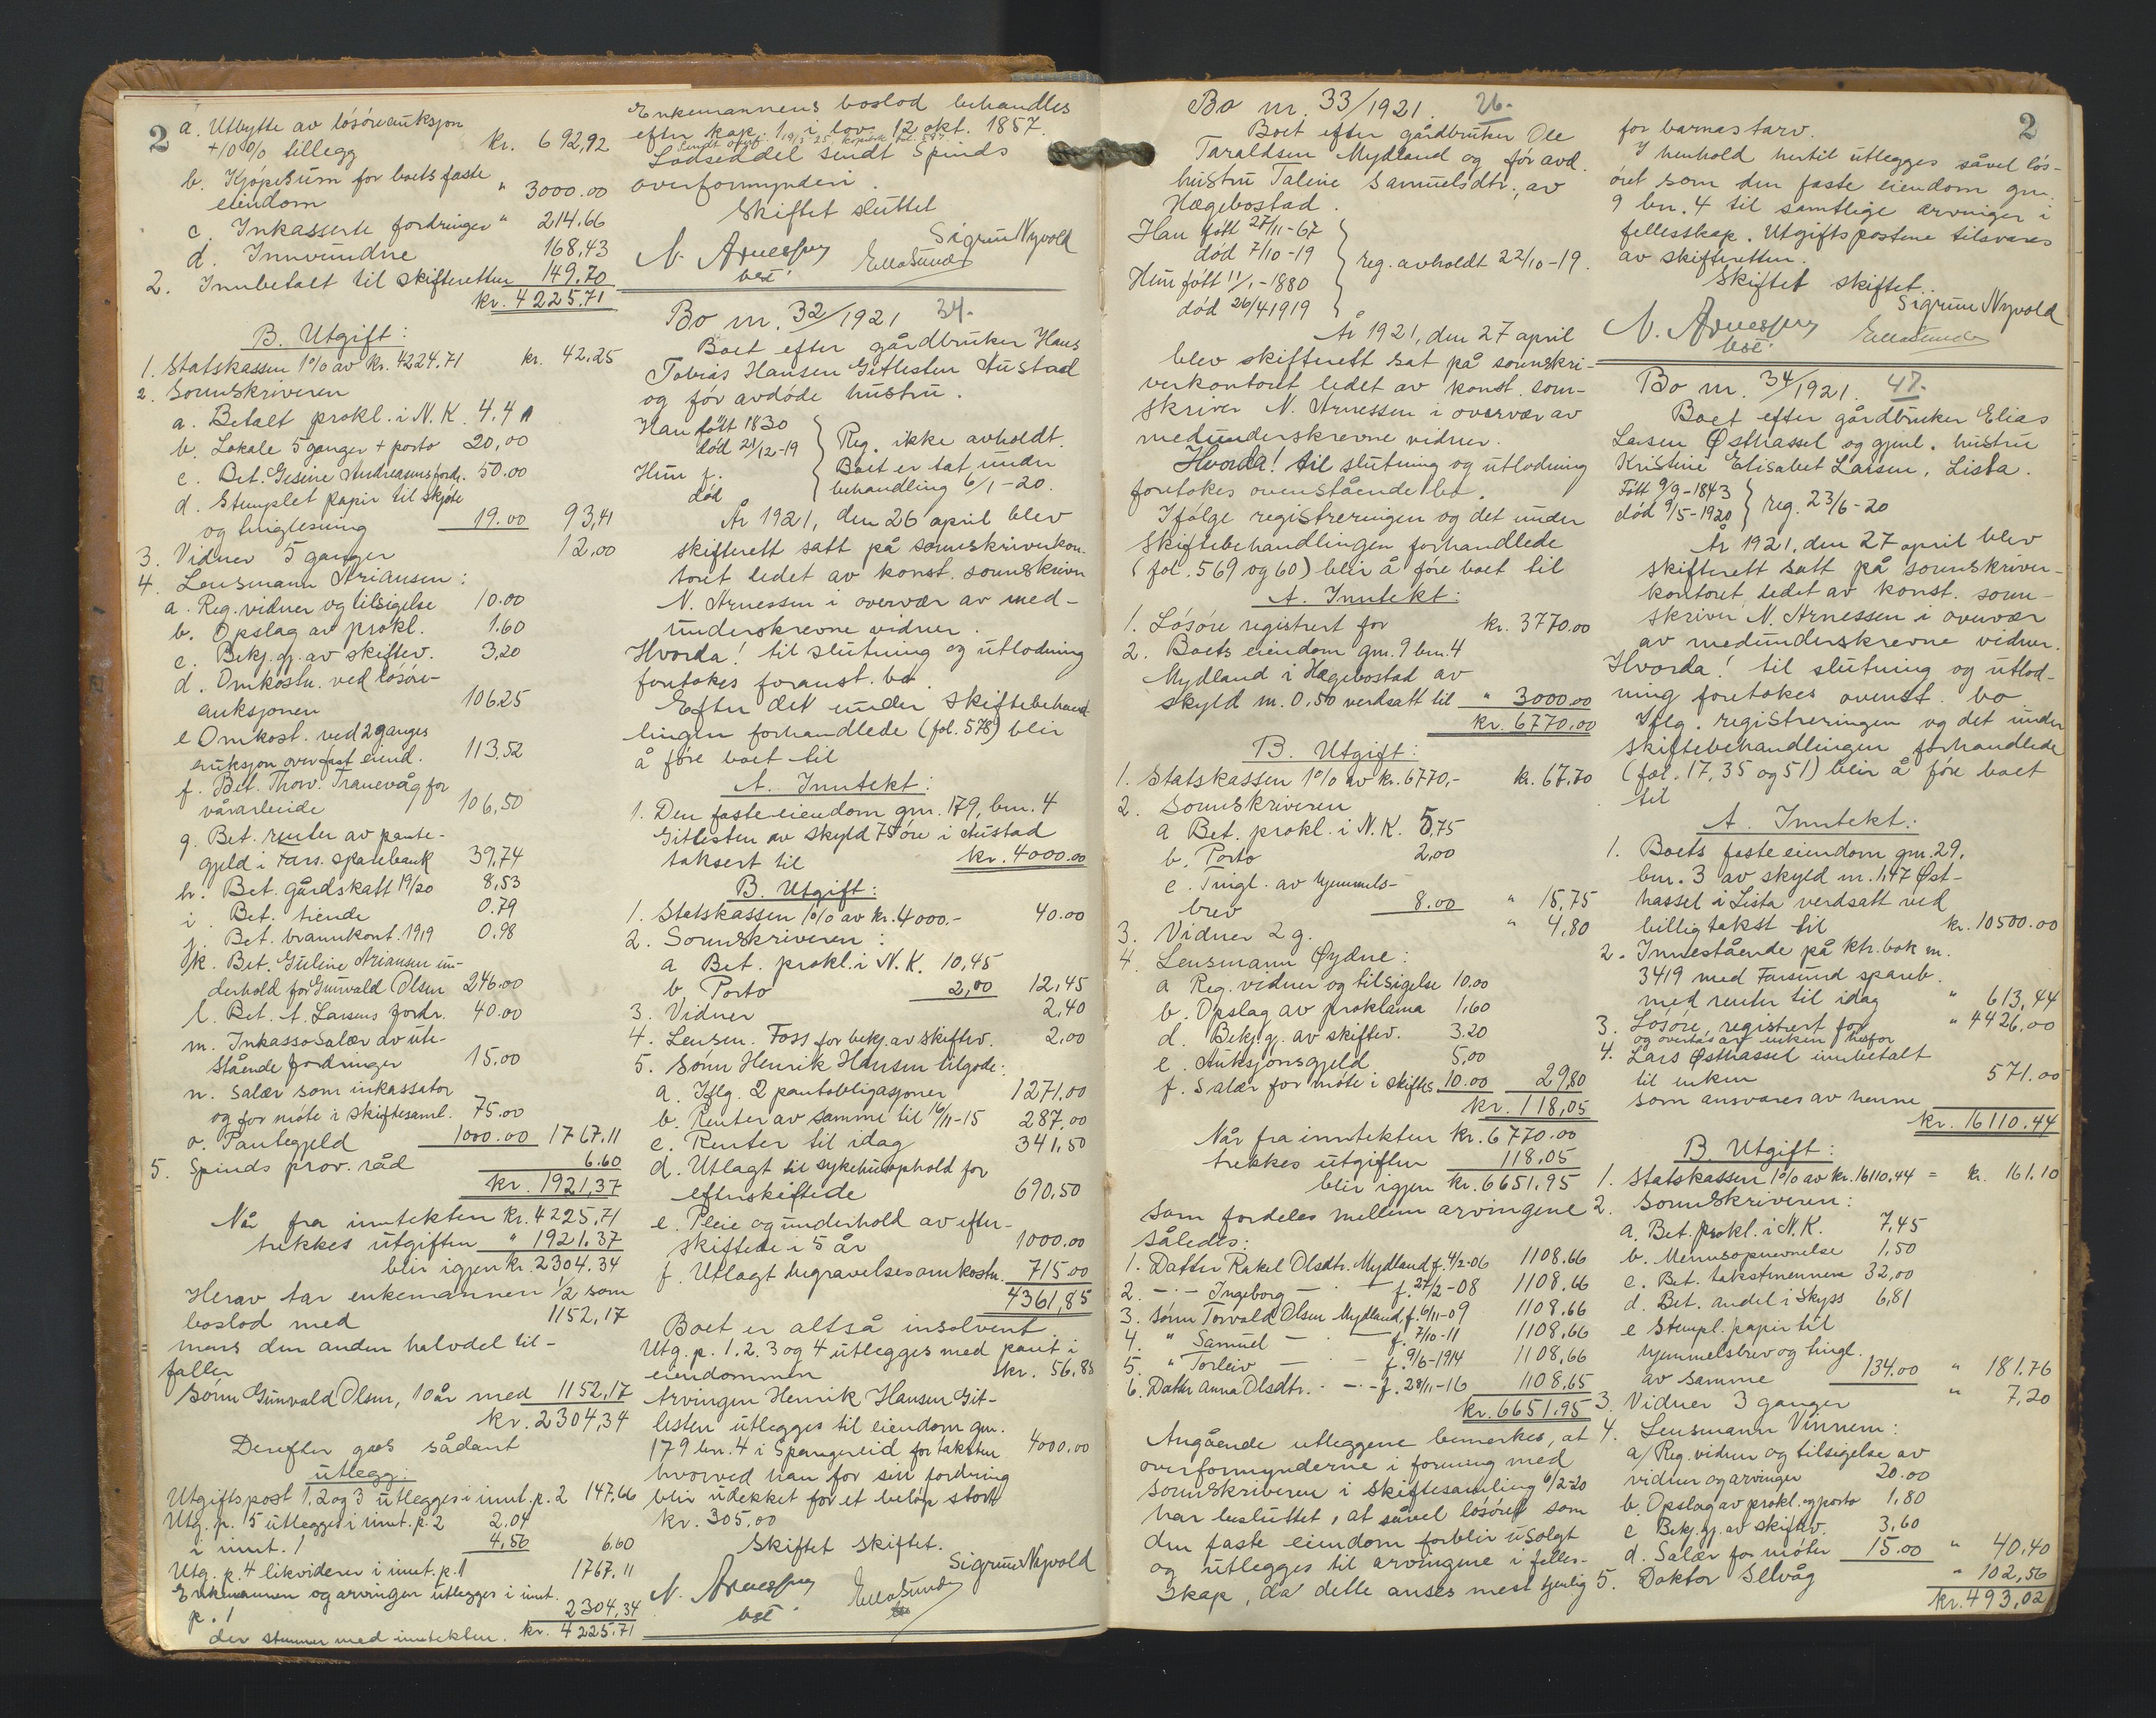 2
a. Utbytte av lösöreauksjon
+10% tillegg kr. 692,92
b. Kjöpesum for boets faste
eiendom " 3000.00
c. Inkasserte fordringer " 214.66
d. Innvundne 168,43
2. Innbetalt til skifteretten 149.70
kr. 4225.71
B. Utgift:
1. Statskassen 1% av kr. 4224.71 kr. 42,25
2. Sorenskriveren
a. Betalt prokl. i N.K. 4.41
b. Lokale 5 ganger + porto 20,00
c. Bet. Gesine Andreasens fordr. 50.00
d. Stemplet papir til skjöte
og tinglesning 19.00 93,41
3. Vidner 5 ganger 12,00
4. Lensmann Ariansen:
a. Reg. vidner og tilsigelse 10.00
b. Opslag av prokl. 1.60
c. Bekj.gj. av skiftev. 3,20
d. Omkostn. ved lösöre-
auksjonen 106.25
e Omkost. ved 2 ganges
auksjon over fast eiend. 113,52
f. Bet. Thorv. Tranevåg for
vårarbeide 106,50
g. Bet. renter av pante-
gjeld i Fars. sparebank 39,74
h. Bet. gårdskatt 19/20 8,53
i Bet. tiende 0.79
j. Bet. brannkont. 1919 0.98
k. Bet. Guline Ariansen un-
derhold for Gunvald Olsen 246.00
l. Bet. A. Larsens fordr. 40.00
m. Inkassosalær av ute-
stående fordringer 15.00
n. Salær som inkassator
og for möte i skiftesaml. 75.00
o. Pantegjeld 1000.00 1767.11
5. Spinds prov. råd 6.60
kr. 1921,37
Når fra inntekten kr. 4225,71
trekkes utgiften " 1921.37
blir igjen kr. 2304.34
Herav tar enkemannen 1/2 som
boslod med 1152,17
mens den anden halvdel til-
faller
Sönn Gunvald Olsen, 10 år med 1152,17
kr. 2304,34
Derefter gjøs sådant
utlegg:
Utgiftspost 1, 2 og 3 utlegges i innt. p. 2 147,66
Utg. p. 5 utlegges i innt. p. 2 2.04
i innt. 1 4,56 6.60
Utg. p. 4 likviderer i innt. p. 1 1767.11
Enkemannen og arvingen utlegges i innt.
p. 1 2304,34
der stemmer med inntekten. kr. 4225.71
Enkemannens boslod behandles
efter kap. 1 i lov 12 okt. 1857.
Lodseddel sendt Spinds
overformynderi.
Skiftet sluttet
Sigrun Nyvold
N. Arnessen
bst.
Ella Sunde
Bo nr. 32/1921 34.
Boet efter gårdbruker Hans
Tobias Hansen Gitlesten Austad
og för avdöde hustru.
Han född 1830
död 21/12-19
Hun f.
död
Reg. ikke avholdt.
Boet er tat under
behandling 6/1-20.
År 1921, den 26 april blev
skifterett satt på sorenskriverkon-
toret ledet av konst. sorenskriver
N. Arnessen i overvær av med-
underskrevne vidner.
Hvorda! til slutning og utlodning
foretokes foranst. bo.
Efter det under skiftebehand
lingen forhandlede (fol. 578) blir
å före boet til
A. Inntekt:
1. Den faste eiendom gnr. 179, bnr. 4
Gitlesten av skyld 75 öre i Austad
taksert til kr. 4000.00
B. Utgift:
1. Statskassen 1% av kr. 4000.- 40.00
2. Sorenskriveren:
a Bet. prokl. i N.K. 10,45
b Porto 2,00 12,45
3. Vidner 2,40
4. Lensm. Foss for bekj. av skiftev. 2,00
5. Sönn Henrik Hansen tilgode:
a. Iflg. 2 pantobligasjoner 1271,00
b. Renter av samme til 16/11-15 287,00
c. Renter til idag 341,50
d. Utlagt til sykehusophold for
efterskiftede 690,50
e. Pleie og underhold av efter-
skiftede i 5 år 1000.00
f. Utlagt begravelsesomkostn. 715.00
4361,85
Boet er altså insolvent.
Utg. p. 1. 2. 3 og 4 utlegges med pant i
eiendommen kr. 56,85
Arvingen Henrik Hansen Git-
lesten utlegges til eiendom gnr.
179 bnr. 4 i Spangereid for taksten 4000.00
hvorved han for sin fordring
blir udekket for et belöp stort
kr. 305.00
Skiftet skiftet.
Sigrun Nyvold
N. Arnessen
bst.
Ella Sunde
Bo nr. 33/1921. 26.
Boet efter gårdbruker Ole
Taraldsen Mydland og för avd.
hustru Taline Samuelsdtr., av
Hægebostad.
Han född 27/11-67
död 7/10-19
Hun född 11/1-1880
död 26/4 1919
reg. avholdt 22/10-19.
År 1921, den 27 april
blev skifterett sat på sorenskri-
verkontoret ledet av konst. soren-
skriver N. Arnessen i overvær av
medunderskrevne vidner.
Hvorda! til slutning og utlodning
foretokes ovenstående bo.
Ifølge registreringen og det under
skiftebehandlingen forhandlede
(fol. 569 og 60) blir å före boet til
A. Inntekt:
1. Lösöre registrert for kr. 3770.00
2. Boets eiendom gnr. 9 bnr. 4
Mydland i Hægebostad av
skyld m. 0,50 verdsatt til " 3000.00
kr. 6770.00
B. Utgift:
1. Statskassen 1% av kr. 6770,- kr. 67.70
2. Sorenskriveren
a Bet. prokl. i N.K. 5,75
b. Porto 2,00
c. Tingl. av hjemmels-
brev 8.00 " 15,75
3. Vidner 2 g. " 4,80
4. Lensmann Øydne:
a Reg. vidner og tilsigelse 10,00
b. Opslag av proklama 1,60
d. Bekj.gj. av skiftev. 3.20
e. Auksjonsgjeld 5,00
f. Salær for möte i skiftes. 10.00 29,80
kr. 118,05
Når fra inntekten kr. 6770.00
trekkes utgiften 118.05
blir igjen kr. 6651.95
som fordeles mellem arvingene
således:
1. Datter Rakel Olsdtr. Mydland f. 4/2-06 1108.66
2. -"- Ingeborg - f. 27/2-08 1108.66
3. Sönn Torvald Olsen Mydland, f. 6/11-09 1108.66
4. " Samuel - f. 7/10-11 1108,66
5. " Torleiv - f. 9/6-1914 1108,66
6. Datter Anna Olsdtr. - f. 28/11-16 1108.65
kr. 6651.95
Angående utleggene bemerkes, at
overformynderne i forening med
sorenskriveren i skiftesamling 6/2-20
har besluttet, at såvel lösöret som
den faste eiendom forblir usolgt
og utlegges til arvingene i felles-
skap, da dette anses mest tjenlig
2
for barnas tarv.
I henhold hertil utlegges såvel lös-
öret som den faste eiendom gnr.
9 bnr. 4 til samtlige arvinger i
fellesskap. Utgiftspostene tilsvares
av skifteretten.
Skiftet skiftet.
Sigrun Nyvold
N. Arnessen
bst.
Ella Sunde
Bo nr. 34/1921. 47.
Boet efter gårdbruker Elias
Larsen Østhassel og gjenl. hustru
Kristine Elisabet Larsen, Lista.
Född 9/9-1843
död 9/5-1920
reg. 23/6-20
År 1921, den 27 april blev
skifterett satt på sorenskriver-
kontoret, ledet av konst. soren-
skriver N. Arnessen i overvær
av medunderskrevne vidner.
Hvorda! til slutning og utlod-
ning foretokes ovenst. bo
Iflg. registreringen og det under
skiftebehandlingen forhandlede
(fol. 17, 35 og 51) blir å före boet
til
A. Inntekt:
1. Boets faste eiendom gnr. 29,
bnr. 3 av skyld m. 1,47 Øst-
hassel i Lista verdsatt ved
billig takst til kr. 10500.00
2. Innestående på ktr. bok nr.
3419 med Farsund spareb.
med renter til idag " 613,44
3. Lösöre, registrert for " 4426,00
og overtas av enken herfor
4. Lars Østhassel innbetalt
til enken 571.00
som ansvares av henne
kr. 16110.44
B. Utgift:
1. Statskassen 1% av kr. 16110.44 = kr. 161.10
2. Sorenskriveren:
a. Bet. prokl. i N.K. 7,45
b. Mennsopnevnelse 1,50
c. Bet. takstmennene 32,00
d. Bet. andel i skyss 6,81
e Stempl. papir til
hjemmelsbrev og tingl.
av samme 134.00 " 181.76
3. Vidner 3 ganger " 7,20
4. Lensmann Vinnem:
a/ Reg. vidner og tilsigelse av
vidner og arvinger 20.00
b. Opslag av prokl. og porto 1,80
c Bekj.gj. av skiftev. 3,60
d. Salær for möter 15.00 " 40.40
5. Doktor Selvåg " 102,56
kr. 493,02